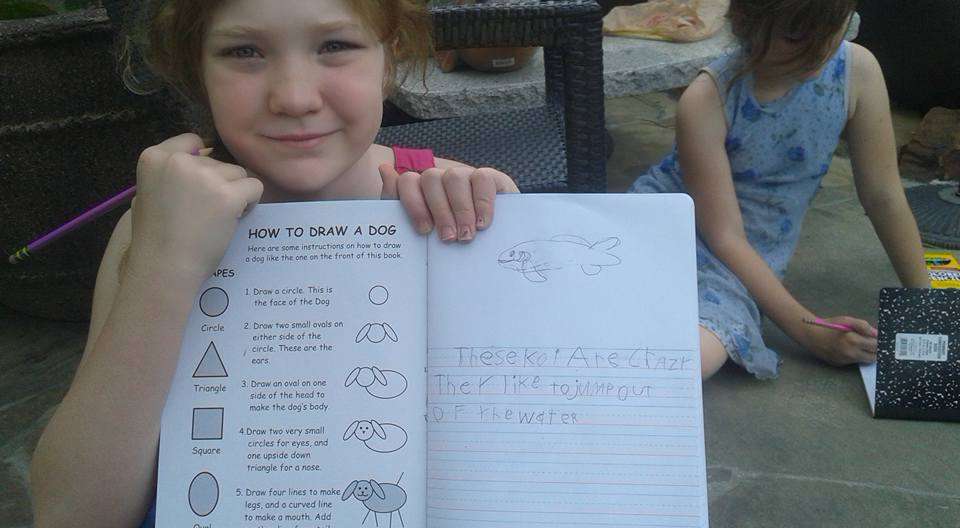 HOW TO DRAW A DOG
Here are some instructions on how to draw
a dog like the one on the front of this book.
APES
Circle
Triangle
Square
Oval
1. Draw a circle. This is
the face of the Dog
2. Draw two small ovals on
either side of the
circle. These are the
ears.
3. Draw an oval on one
side of the head to
make the dog's body
4. Draw two very small
circles for eyes, and
one upside down
triangle for a nose.
5. Draw four lines to make
legs, and a curved line
to make a mouth. Add
These koi Are Crazy
They like to jump out
OF the water